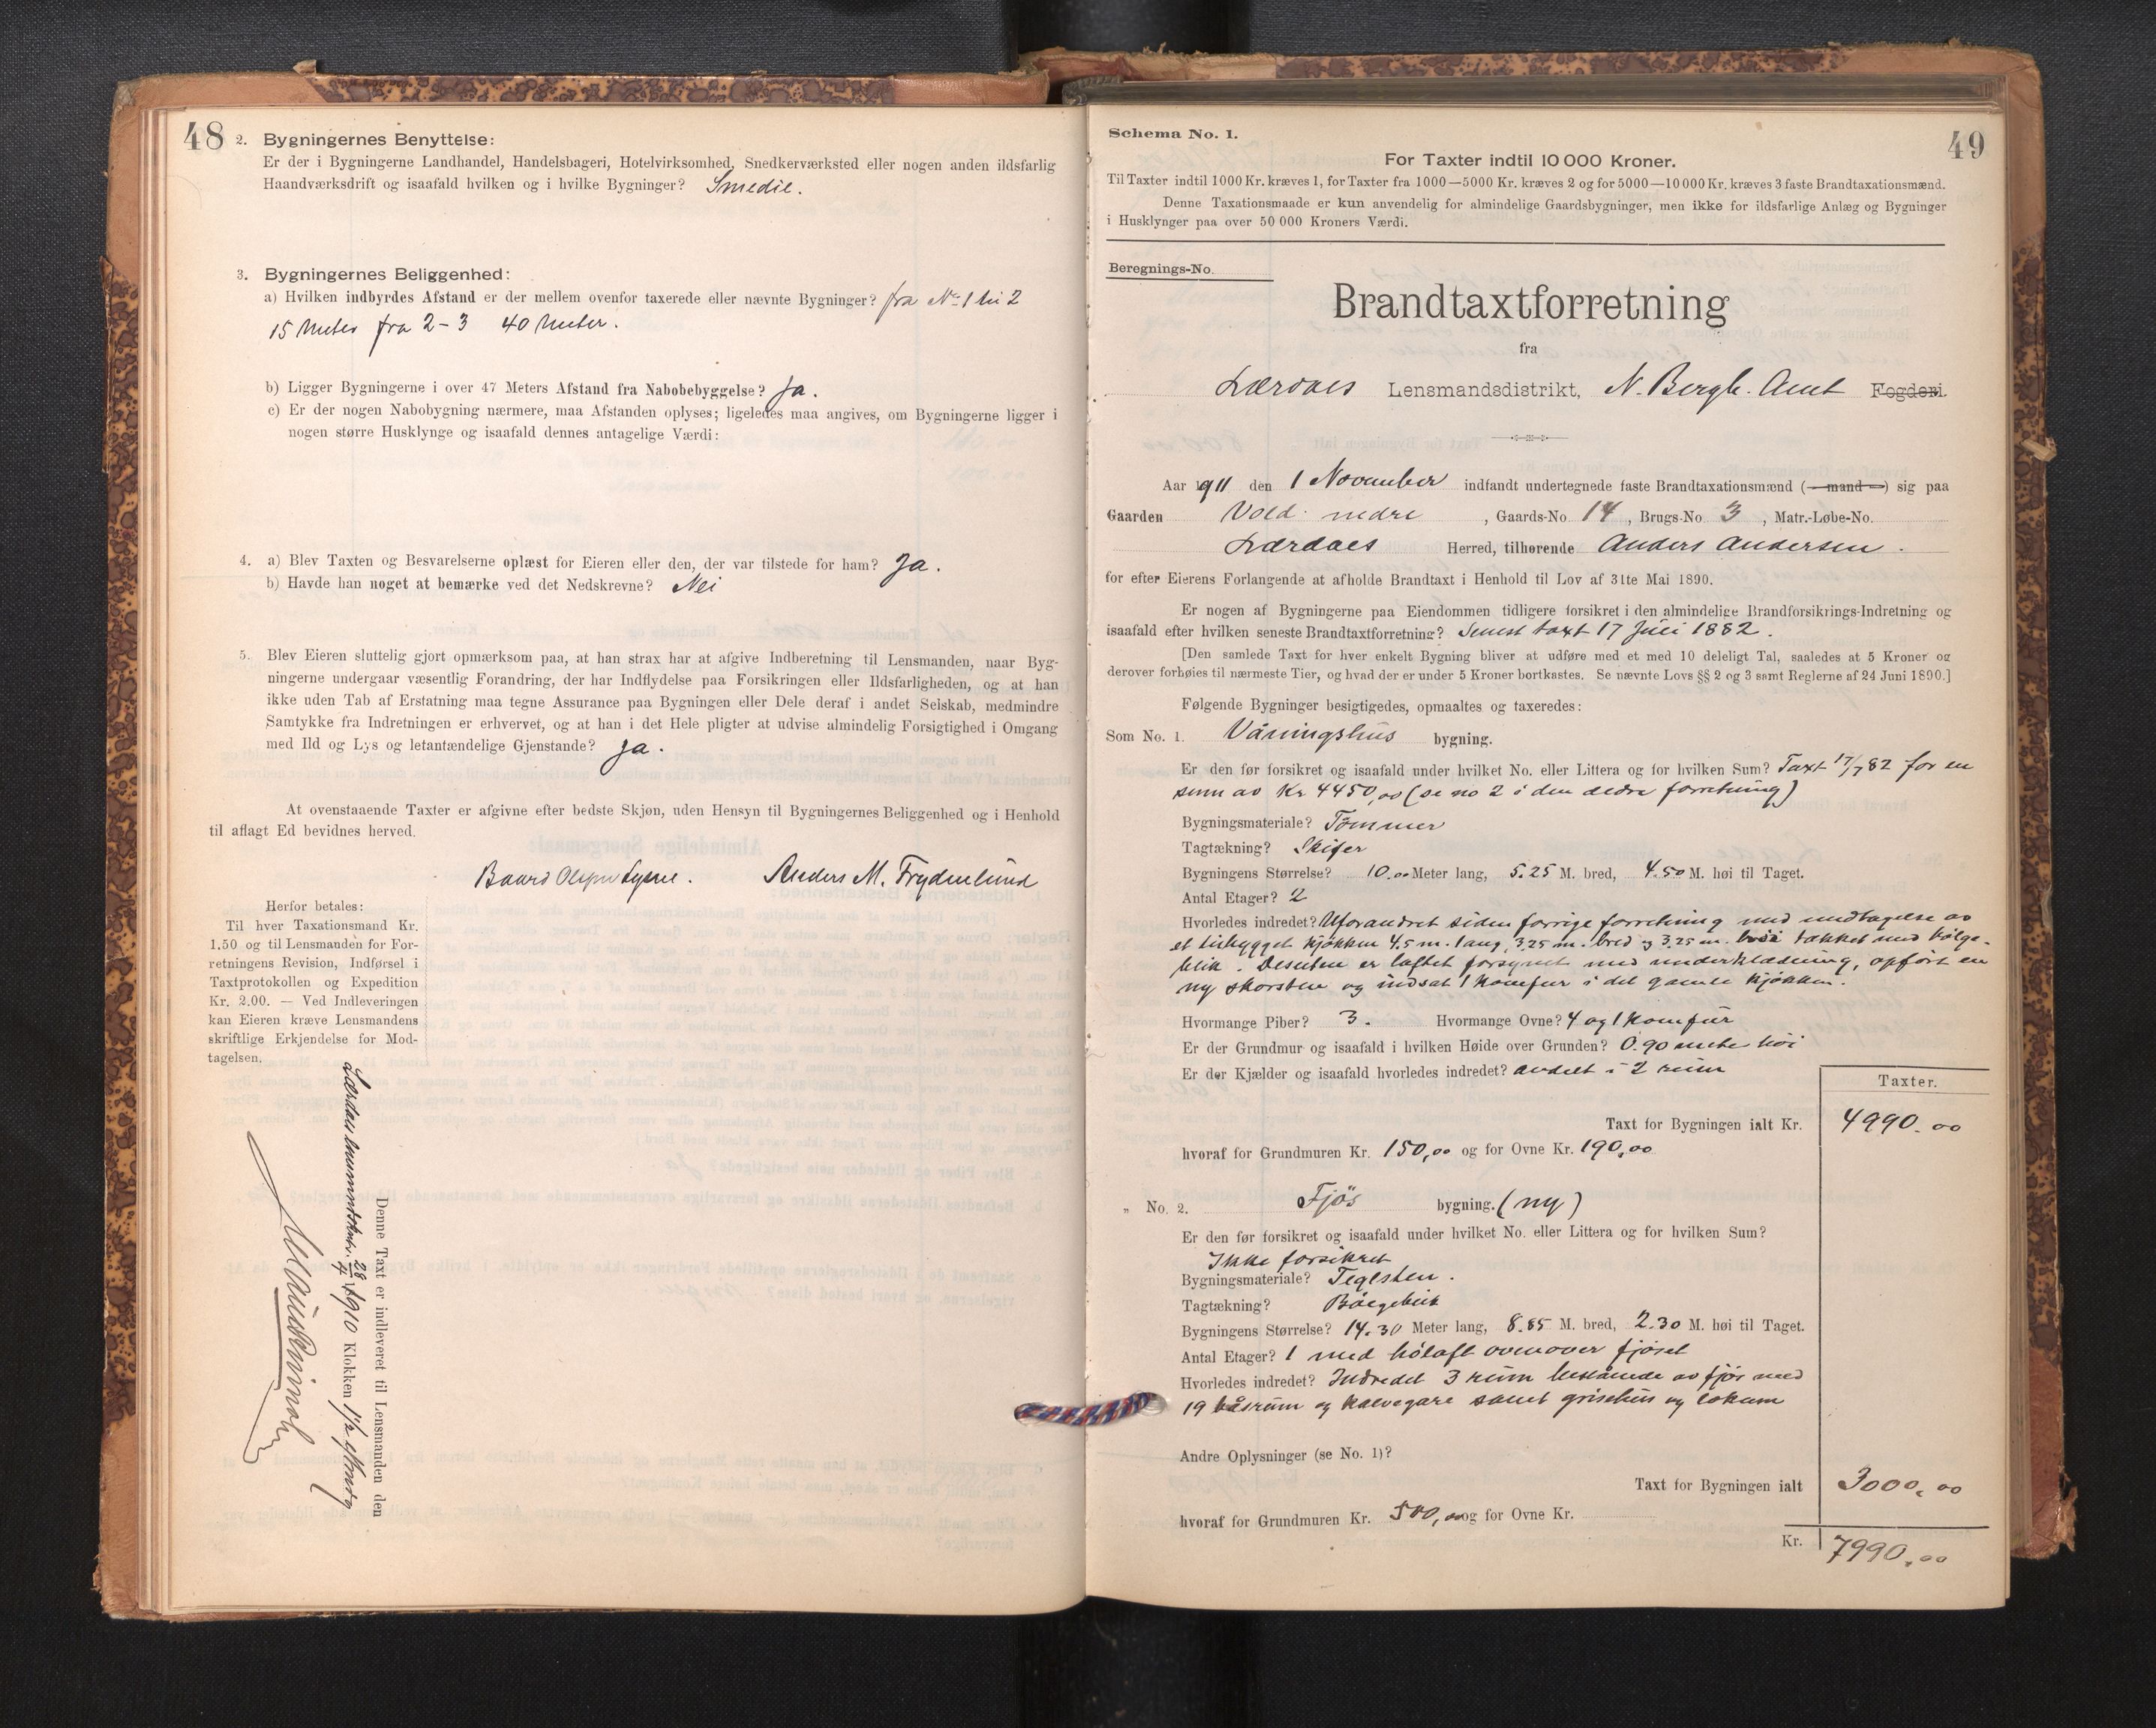 48
2. Bygningernes Benyttelse:
Er der i Bygningerne Landhandel, Handelsbageri, Hotelvirksomhed, Snedkerværksted eller nogen anden ildsfarlig
Haandværksdrift og isaafald hvilken og i hvilke Bygninger? Smedie.
3. Bygningernes Beliggenhed:
a) Hvilken indbyrdes Afstand er der mellem ovenfor taxerede eller nævnte Bygninger? fra No 1 til 2
15 Meter fra 2-3 40 Meter.
b) Ligger Bygningerne i over 47 Meters Afstand fra Nabobebyggelse? Ja.
c) Er der nogen Nabobygning nærmere, maa Afstanden oplyses; ligeledes maa angives, om Bygningerne ligger i
nogen større Husklynge og isaafald dennes antagelige Værdi:
4. a) Blev Taxten og Besvarelserne oplæst for Eieren eller den, der var tilstede for ham? Ja.
b) Havde han noget at bemærke ved det Nedskrevne? Nei
5. Blev Eieren sluttelig gjort opmærksom paa, at han strax har at afgive Indberetning til Lensmanden, naar Byg-
ningerne undergaar væsentlig Forandring, der har Indflydelse paa Forsikringen eller Ildsfarligheden, og at han
ikke uden Tab af Erstatning maa tegne Assurance paa Bygningen eller Dele deraf i andet Selskab, medmindre
Samtykke fra Indretningen er erhvervet, og at han i det Hele pligter at udvise almindelig Forsigtighed i Omgang
med Ild og Lys og letantændelige Gjenstande? Ja.
At ovenstaaende Taxter er afgivne efter bedste Skjøn, uden Hensyn til Bygningernes Beliggenhed og i Henhold
til aflagt Ed bevidnes herved.
Baard Olsen Lysne. Anders M. Frydenlund
Herfor betales:
Til hver Taxationsmand Kr.
1.50 og til Lensmanden for For-
retningens Revision, Indførsel i
Taxtprotokollen og Expedition
Kr. 2.00. — Ved Indleveringen
kan Eieren kræve Lensmandens
skriftlige Erkjendelse for Mod-
tagelsen.
Denne Taxt er indleveret til Lensmanden den
Lærdals lensmandskontr. 28/4 1910 Klokken 1 1/2 efterm
49
Schema No. 1.
For Taxter indtil 10 000 Kroner.
Til Taxter indtil 1000 Kr. kræves 1, for Taxter fra 1000—5000 Kr. kræves 2 og for 5000—10 000 Kr. kræves 3 faste Brandtaxationsmænd.
Denne Taxationsmaade er kun anvendelig for almindelige Gaardsbygninger, men ikke for ildsfarlige Anlæg og Bygninger
i Husklynger paa over 50 000 Kroners Værdi.
Beregnings-No.
Brandtaxtforretning
fra
Lærdals Lensmandsdistrikt, N. Bergh. Amt Fogderi.
Aar 1911 den 1 November indfandt undertegnede faste Brandtaxationsmænd (— mand —) sig paa
Gaarden Vold nedre, Gaards-No 14, Brugs-No 3, Matr.-Løbe-No.
Lærdals Herred, tilhørende Anders Andersen.
for efter Eierens Forlangende at afholde Brandtaxt i Henhold til Lov af 31te Mai 1890.
Er nogen af Bygningerne paa Eiendommen tidligere forsikret i den almindelige Brandforsikrings-Indretning og
isaafald efter hvilken seneste Brandtaxtforretning? Senest taxt 17 Juli 1882.
[Den samlede Taxt for hver enkelt Bygning bliver at udføre med et med 10 deleligt Tal, saaledes at 5 Kroner og
derover forhøies til nærmeste Tier, og hvad der er under 5 Kroner bortkastes. Se nævnte Lovs §§ 2 og 3 samt Reglerne af 24 Juni 1890.]
Følgende Bygninger besigtigedes, opmaaltes og taxeredes:
Som No. 1. Våningshus bygning.
Er den før forsikret og isaafald under hvilket No. eller Littera og for hvilken Sum? Taxt 17/7 82 for en
sum av Kr 4450,00 (se no 2 i den ældre forretning)
Bygningsmateriale? Tømmer
Tagtækning? Skifer
Bygningens Størrelse? 10.00 Meter lang, 5.25 M. bred, 4.50 M. høi til Taget.
Antal Etager? 2
Hvorledes indredet? Uforandret siden forrige forretning med undtagelse av
et tilbygget kjøkken 4.5 m. lang, 3.25 m. bred og 3.25 m. høi tækket med bølge-
blik. Desuten er loftet forsynet med underklædning, opført en
ny skorsten og indsat 1 komfur i det gamle kjøkken.
Hvormange Piber? 3. Hvormange Ovne? 4 og 1 komfur
Er der Grundmur og isaafald i hvilken Høide over Grunden? 0.90 meter høi
Er der Kjælder og isaafald hvorledes indredet? avdelt i 2 rum
Taxter.
Taxt for Bygningen ialt Kr. 4990.00
hvoraf for Grundmuren Kr. 150,00 og for Ovne Kr. 190,00
" No. 2. Fjøs bygning. (ny)
Er den før forsikret og isaafald under hvilket No. eller Littera og for hvilken Sum?
Ikke forsikret
Bygningsmateriale? Teglsten.
Tagtækning? Bølgeblik
Bygningens Størrelse? 14.30 Meter lang, 8.85 M. bred, 2.30 M. høi til Taget.
Antal Etager? 1 med høloft ovenover fjøset
Hvorledes indredet? Indredet 3 rum bestående av fjøs med
19 båsrum og kalvegare samt grisehus og lokum
Andre Oplysninger (se No. 1)?
Taxt for Bygningen ialt 3000,00
hvoraf for Grundmuren Kr. 500,00 og for Ovne Kr.
Kr. 7990,00